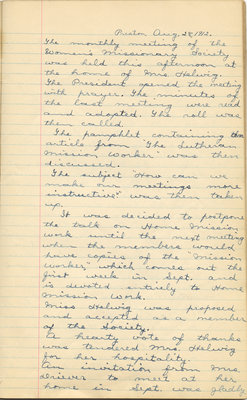 Preston Aug. 28, 1912.
The monthly meeting of the
Women's Missionary Society
was held this afternoon at
the home of Mrs. Helwig.
The President opened the meeting
with prayer. The minutes of
the last meeting were read
and adopted. The roll was
then called.
The pamphlet containing the
article from "The Lutheran
Mission Worker" was then
discussed.
The subject "How can we
make our meetings more
instructive?" was then taken
up.
It was decided to postpone
the talk on Home Mission
work until the next meeting
when the members would
have copies of the "Mission
Worker" which comes out the
first week in Sept. and
is devoted entirely to Home
Mission Work.
Miss Helwig was proposed
and accepted as a member
of the Society.
A hearty vote of thanks
was tendered Mrs. Helwig
for her hospitality.
An invitation from Mrs.
to meet at her
home in Sept. was gladly